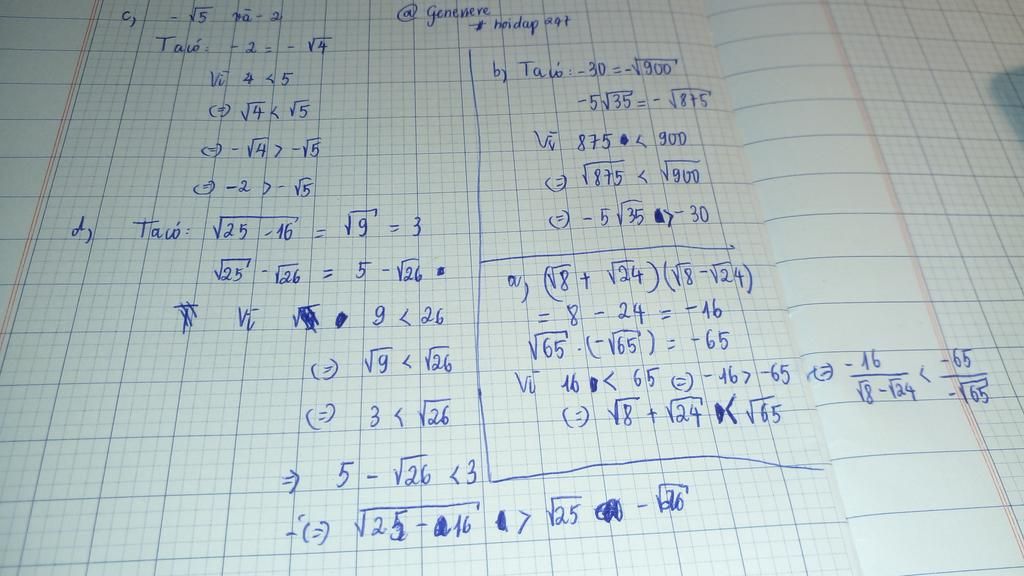 c, - √5 và - 2
@ Genenere
* hoidap 247
Ta có: - 2 = - √4
Vì 4 < 5
(=) √4 < √5
(=) - √4 > - √5
(=) - 2 > - √5
d, Ta có: √25 - 16 = √9 = 3
√25 - √26 = 5 - √26
Vì 9 < 26
(=) √9 < √26
(=) 3 < √26
=> 5 - √26 < 3
(=) √25 - 16 > √25 - √26
b, Ta có: - 30 = - √900
- 5√35 = - √875
Vì 875 < 900
(=) √875 < √900
(=) - 5√35 > - 30
a, (√8 + √24)(√8 - √24)
= 8 - 24 = - 16
√65 . (- √65) = - 65
Vì 16 < 65 (=) - 16 > - 65 (=) -16/(√8 - √24) < -65/(-√65)
(=) √8 + √24 < √65